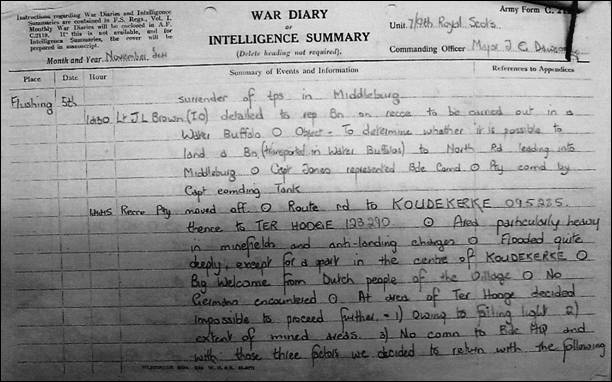 Instructions regarding War Diaries and Intelligence
Summaries are contained in F.S. Regs., Vol. I.
Monthly War Diaries will be enclosed in A.F.
C.2119. If this is not available, and for
Intelligence Summaries, the cover will be
prepared in manuscript.
Month and Year November 1944
WAR DIARY
OR
INTELLIGENCE SUMMARY
(Delete heading not required).
Army Form C. 2118
Unit 7/9th Royal Scots
Commanding Officer Major J. E.
Place Date Hour Summary of Events and Information References to Appendices
Flushing 5th surrender of tps in Middleburg
Lt J L Brown (IO) detailed to rep Bn on recce to be carried out in a
Water Buffalo ⊙ Object - To determine whether it is possible to
land a Bn (transported in Water Buffalos) to North Rd leading into
Middleburg ⊙ Capt Jones represented Bde Comd ⊙ Pty comd by
Capt comding Tank
Recce Pty moved off. ⊙ Route rd to KOUDEKERKE 095285.
thence to TER HOOGE 123290 ⊙ Area particularly heavy
in minefields and anti-landing charges ⊙ Flooded quite
deeply, except for a part in the centre of KOUDEKERKE ⊙
Big Welcome from Dutch people of the Village ⊙ No
Germans encountered ⊙ At area of Ter Hooge decided
impossible to proceed further - 1) Owing to failing light 2)
extent of mined areas. 3) No comn to Bde HQ and
with those three factors we decided to return with the following